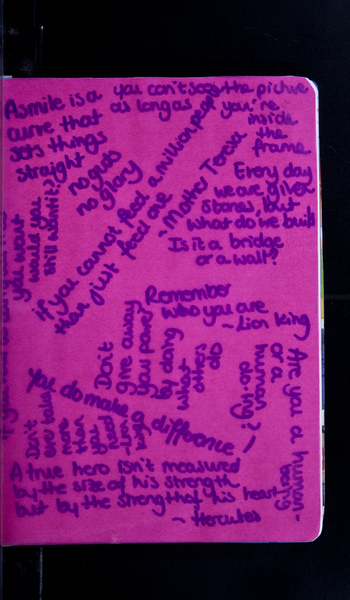 A smile is a
curve that
sets things
straight
you can't see the picture
as long as you're
inside
the
frame
no guts
no glory
if you cannot feed a million people
then just feed one
~Mother Teresa
Every day
we are given
stones, but
what do we build
Is it a bridge
or a wall?
you want
would you
still want it?
Remember
who you are
~Lion King
Don't
give away
you power
by doing
what
others
do
Are you a human-
being
or a
human
do-ing
?
You do make a difference ~
Don't
ever take
more
than
you
need
~Lion
King
A true hero isn't measured
by the size of his strength
but by the strength of his heart
~ Hercules